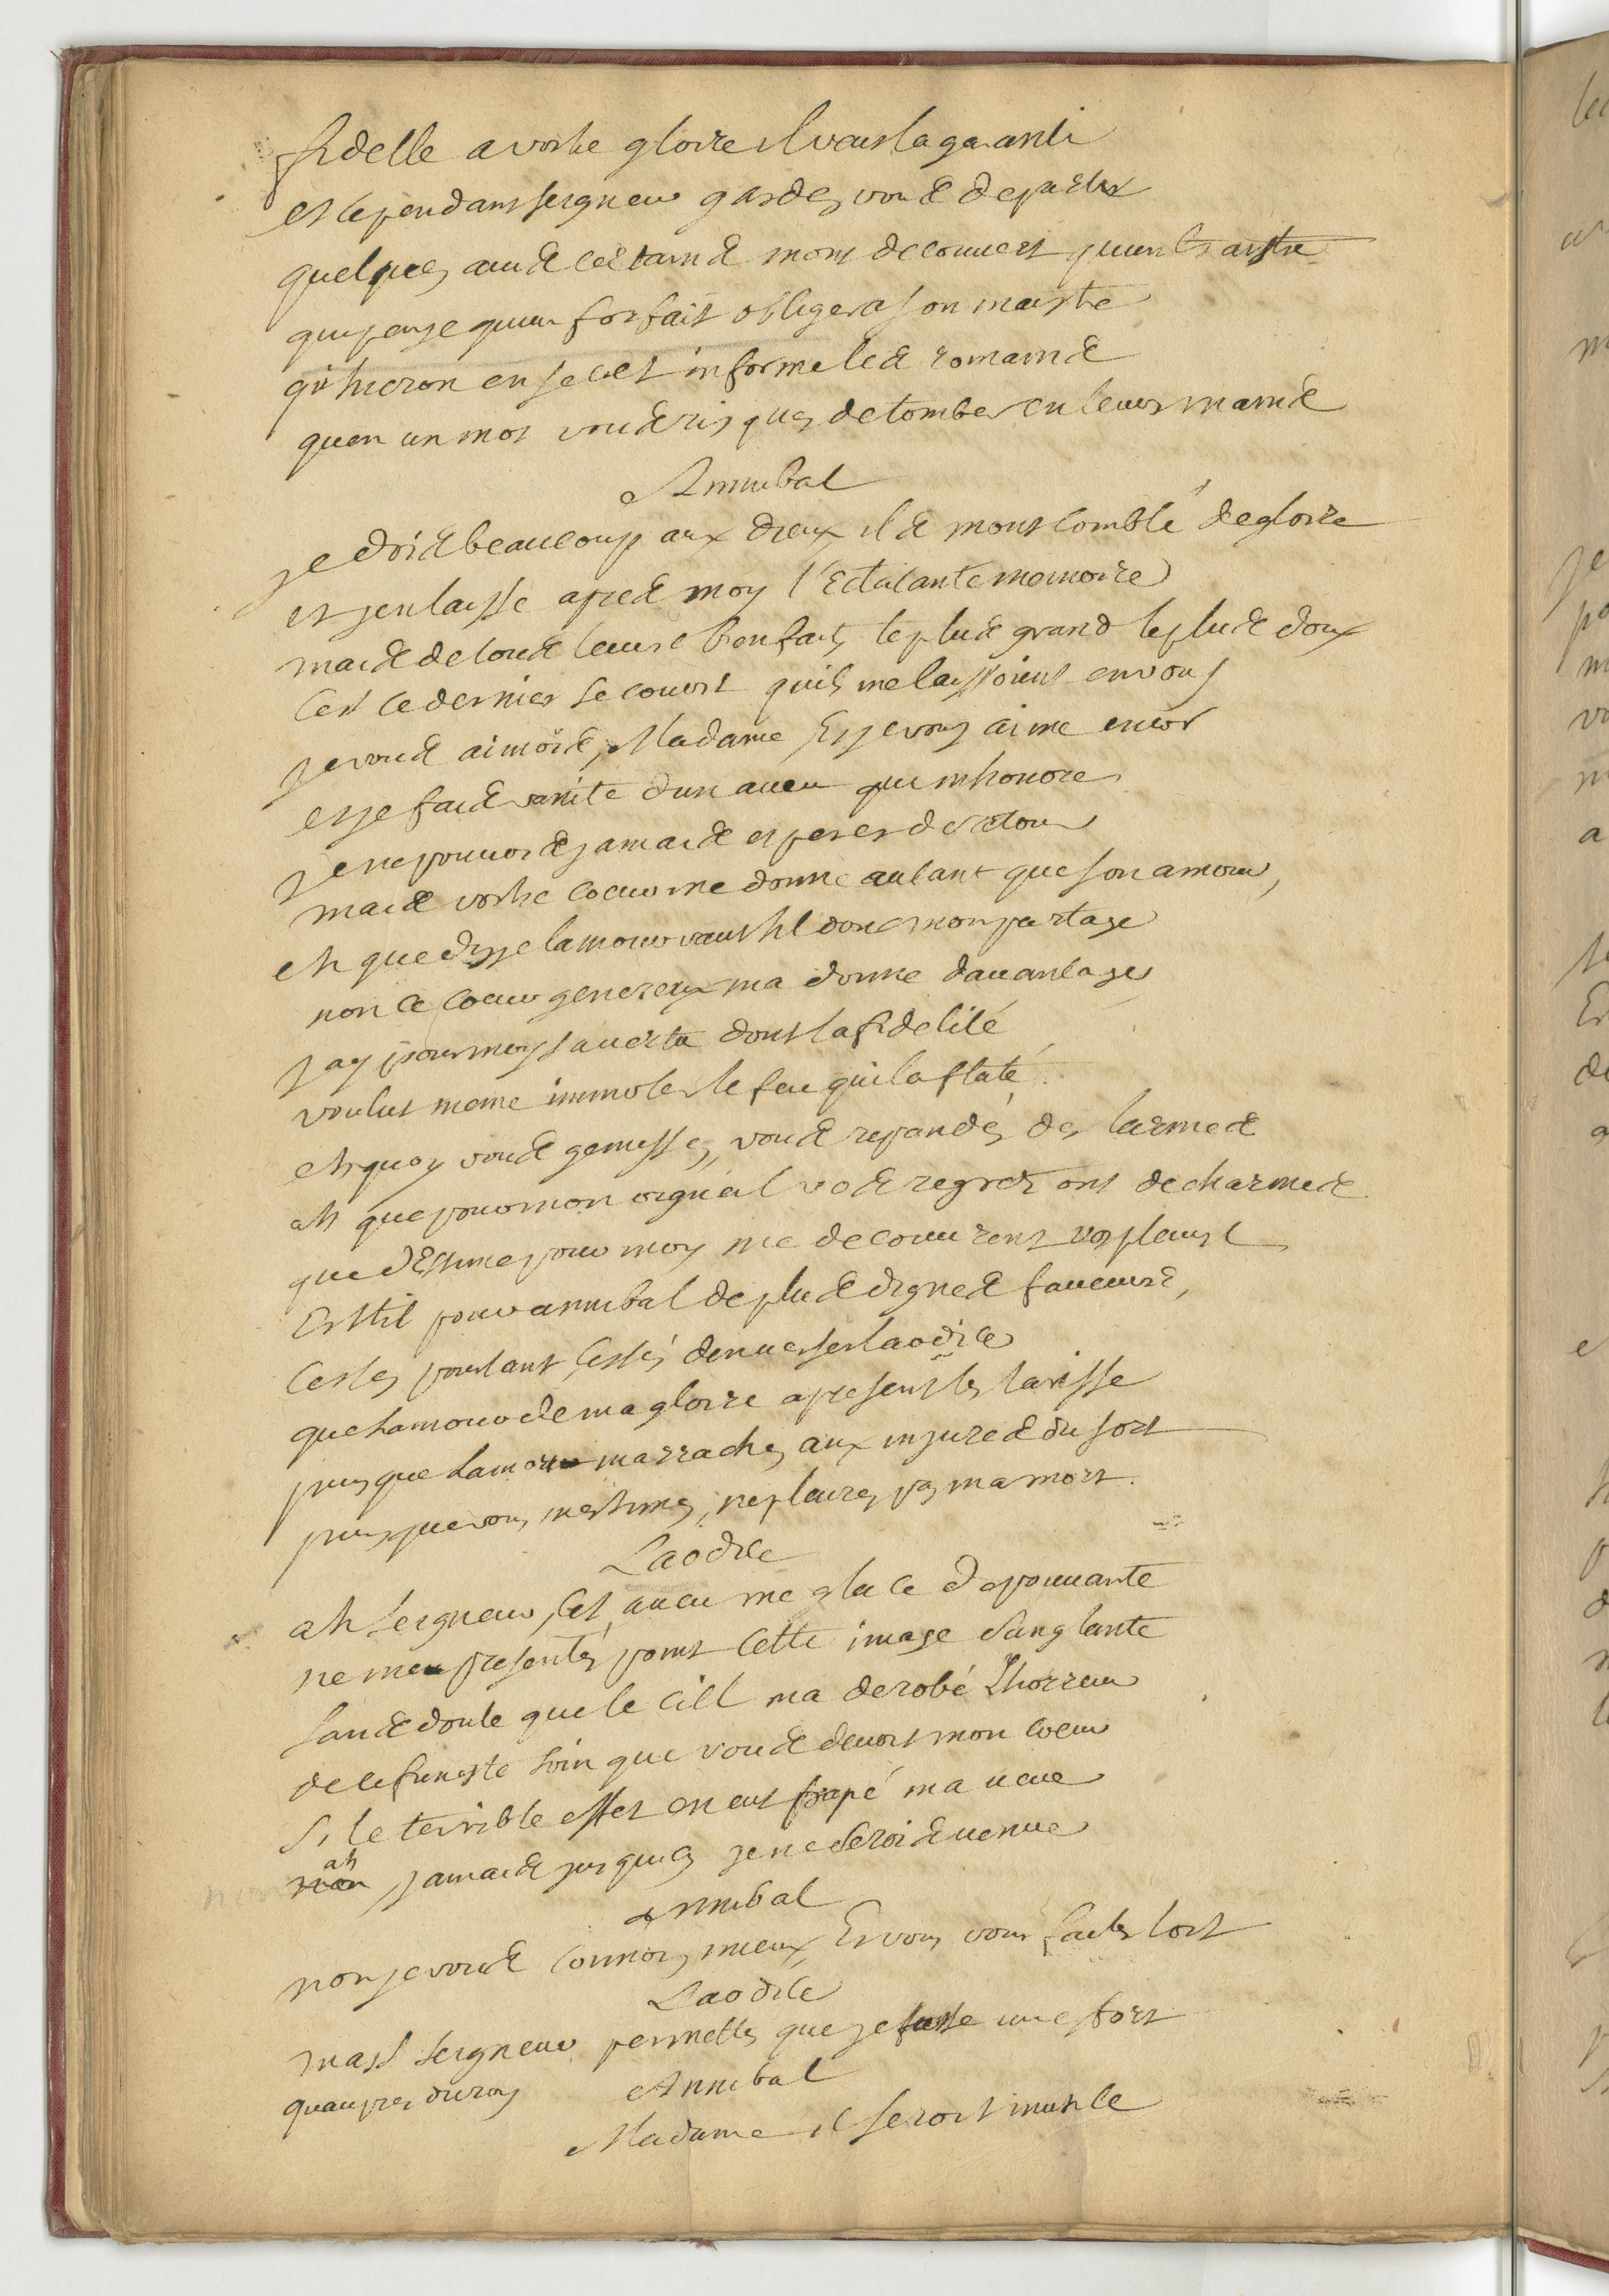 fidelle a vostre gloire il veut la garanti
et cependant seigneur gardez vous de partir
quelques auis certains mont decouuert quun traistre
qui pense quun forfait obligera son maistre
qu'hieron en secret informe les romains
quen un mot vous risquez de tomber en leurs mains
Annibal
je dois beaucoup aux dieux, ils mont comblé de gloire
et jen laisse apres moy l'Eclatante memoire
mais de tous leurs bienfaits le plus grand le plus doux
Cest ce dernier secours quils me laissoient en vous
je vous aimois, Madame Et je vous aime encor
et je fais vanité dun aueu qui mhonore
je ne pouuois jamais esperer de retour
mais vostre coeur me donne autant que son amour,
eh que dis je lamour vaut til donc mon partage
non ce coeur genereux ma donné dauantage
jay pour moy sa vertu dont la fidelité
voulut meme immoler le feu qui la flaté
eh quoy vous gemissez, vous repandés des larmes
ah que pour mon orgueil vos regrets ont de charmes
que d'Estime pour moy me decouurent vos pleurs
Est til pour annibal de plus dignes faueurs,
Cessez pourtant, Cessés den verser laodice
que lamour de ma gloire apresent les tarisse
puisque la mort marrache aux injures du sort
puis que vous mestimez, ne pleurez pas ma mort.
Laodice
ah seigneur, Cet aueu me glace depouuante
ne me presentés point Cette image sanglante
sans doute que le Ciel ma derobé Lhorreur
de ce funeste soin que vous deuoit mon coeur
Si le terrible effet en eut frapé ma ueue
ah jamais jusquicy je ne serois uenue
annibal
non je vous Connois mieux Et vous vous faites tort
Laodice
mais seigneur permettez que je fasse un effort
quaupres du roy
Annibal
Madame il seroit inutile